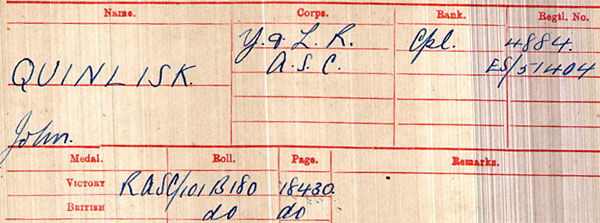 Name. Corps. Rank. Regtl. No.
Y. & L. R. Cpl. 4884.
QUINLISK. A.S.C. ES/51404
John.
Medal. Roll. Page. Remarks.
VICTORY RASC/101B180 18430
BRITISH do do